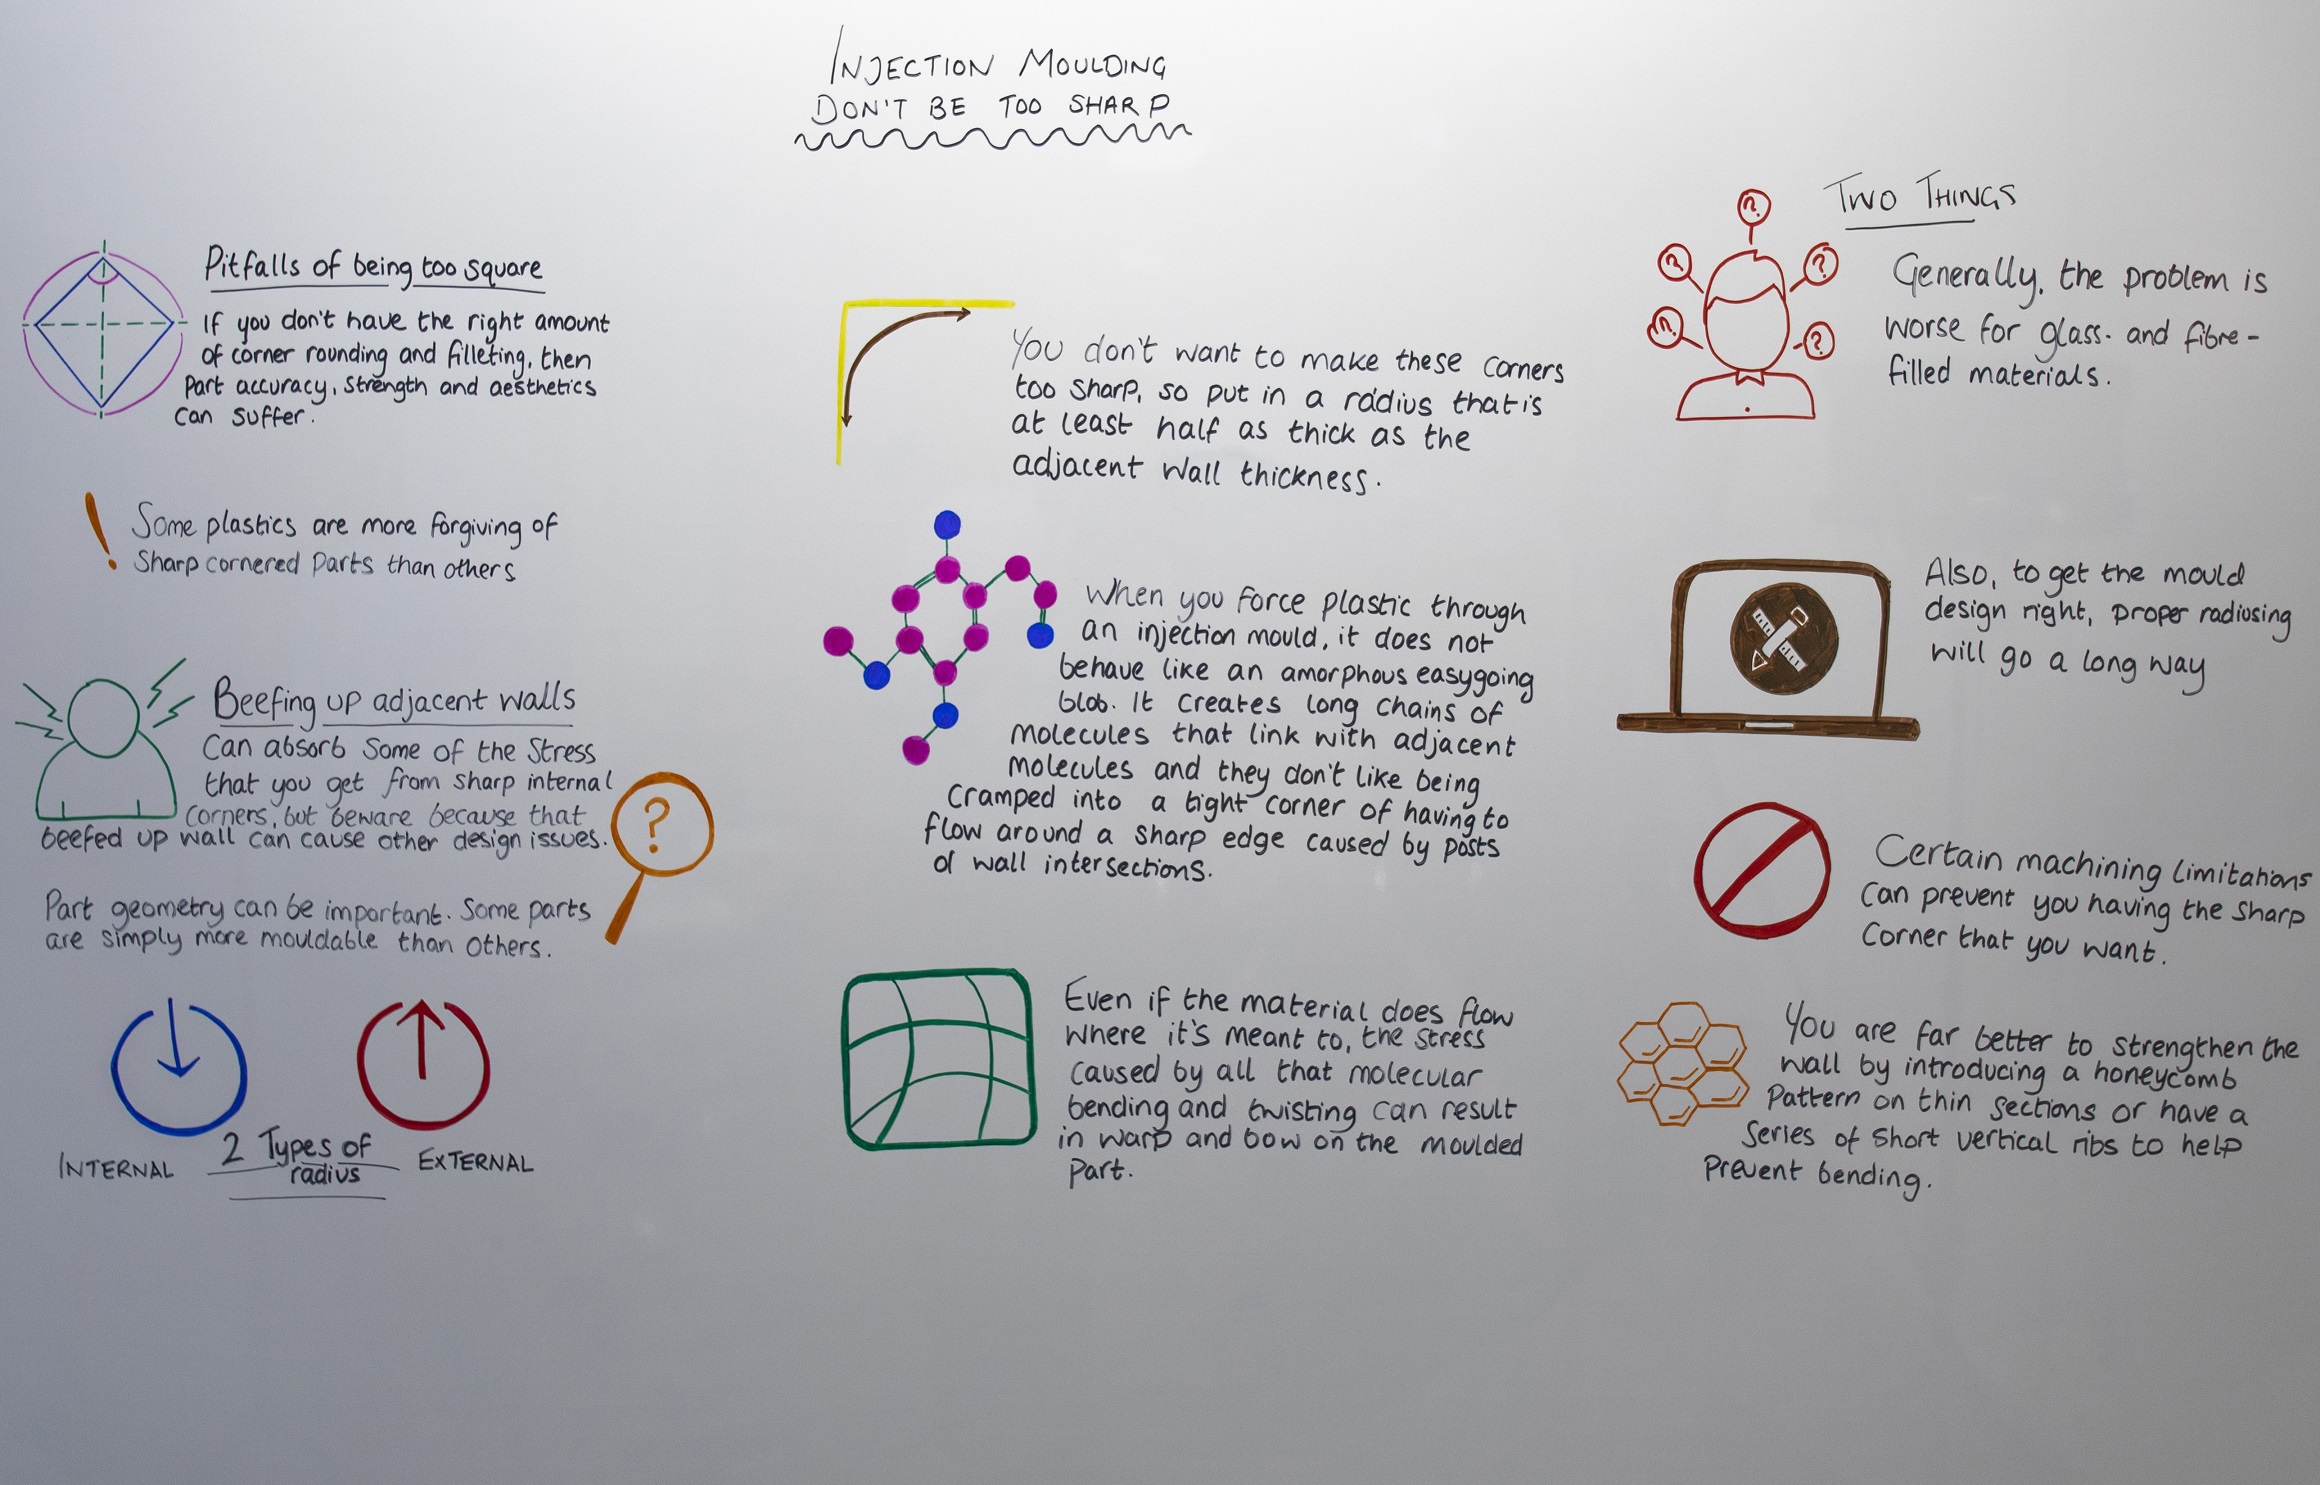 INJECTION MOULDING
DON'T BE TOO SHARP
Pitfalls of being too square
If you don't have the right amount
of corner rounding and filleting, then
Part accuracy, strength and aesthetics
can suffer.
! Some plastics are more forgiving of
Sharp cornered Parts than others
Beefing up adjacent walls
Can absorb some of the stress
that you get from sharp internal
corners, but beware because that
beefed up wall can cause other design issues.
?
Part geometry can be important. Some parts
are simply more mouldable than others.
INTERNAL
2 Types of
radius
EXTERNAL
You don't want to make these corners
too sharp, so put in a radius that is
at least half as thick as the
adjacent wall thickness.
When you force plastic through
an injection mould, it does not
behave like an amorphous easygoing
blob. It creates long chains of
molecules that link with adjacent
molecules and they don't like being
cramped into a tight corner of having to
flow around a sharp edge caused by posts
of wall intersections.
Even if the material does flow
where it's meant to, the stress
caused by all that molecular
bending and twisting can result
in warp and bow on the moulded
part.
TWO THINGS
?
?
?
?
?
Generally, the problem is
worse for glass- and fibre-
filled materials.
Also, to get the mould
design right, proper radiusing
will go a long way
Certain machining limitations
can prevent you having the sharp
corner that you want.
You are far better to strengthen the
wall by introducing a honeycomb
pattern on thin sections or have a
series of short vertical ribs to help
prevent bending.